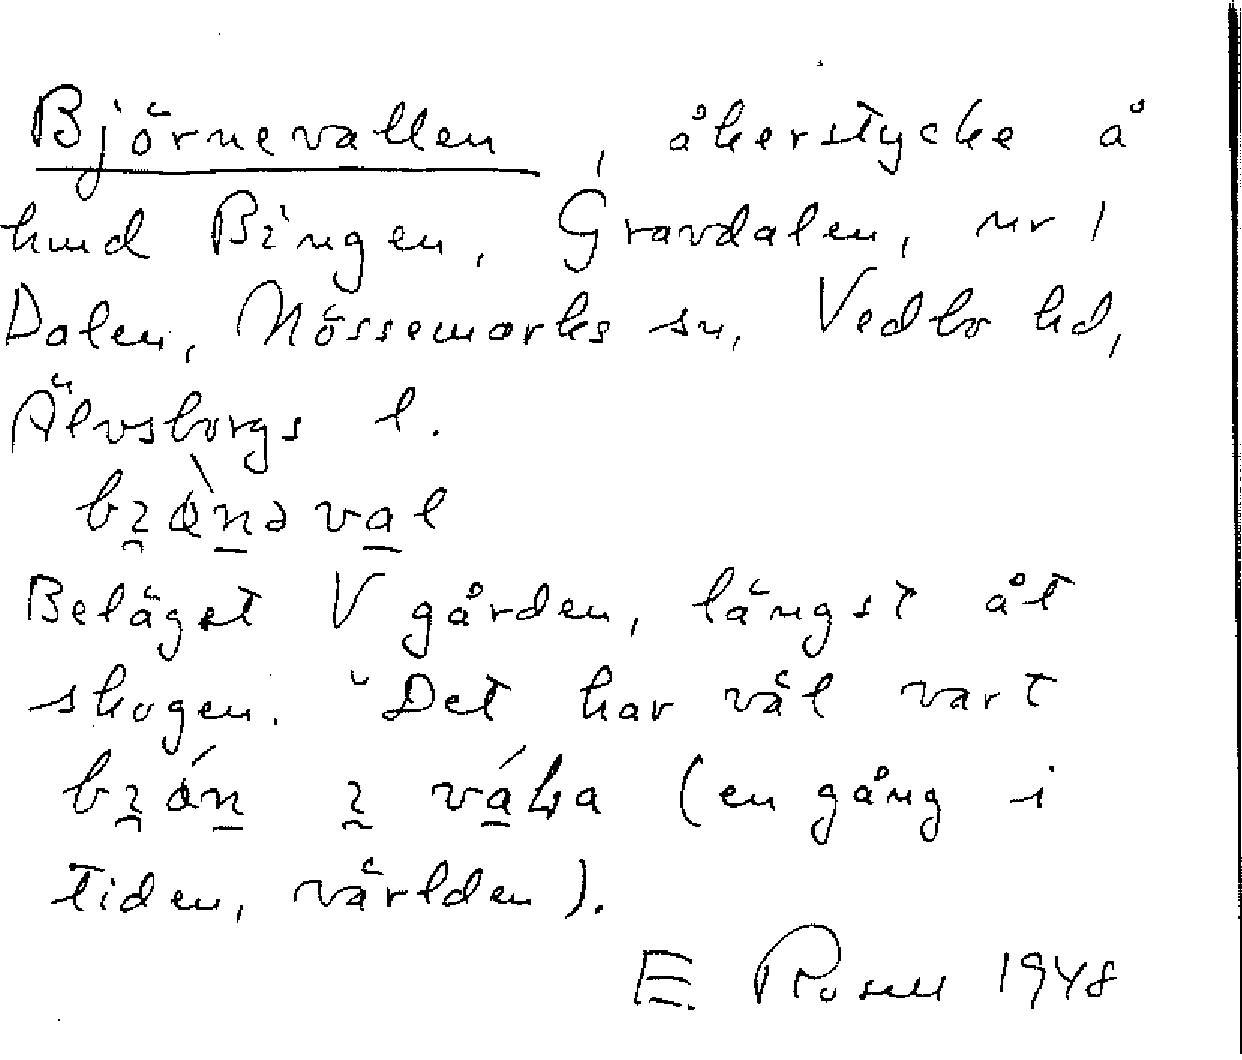 Björnevallen, åkerstycke å
hmd Bingen, Gravdalen, nr 1
Dalen, Nössemarks sn, Vedbo hd,
Älvsborgs l.
Beläget V gården, längst åt
skogen. "Det har väl vart
(en gång i
tiden, världen).
E. Rosell 1948